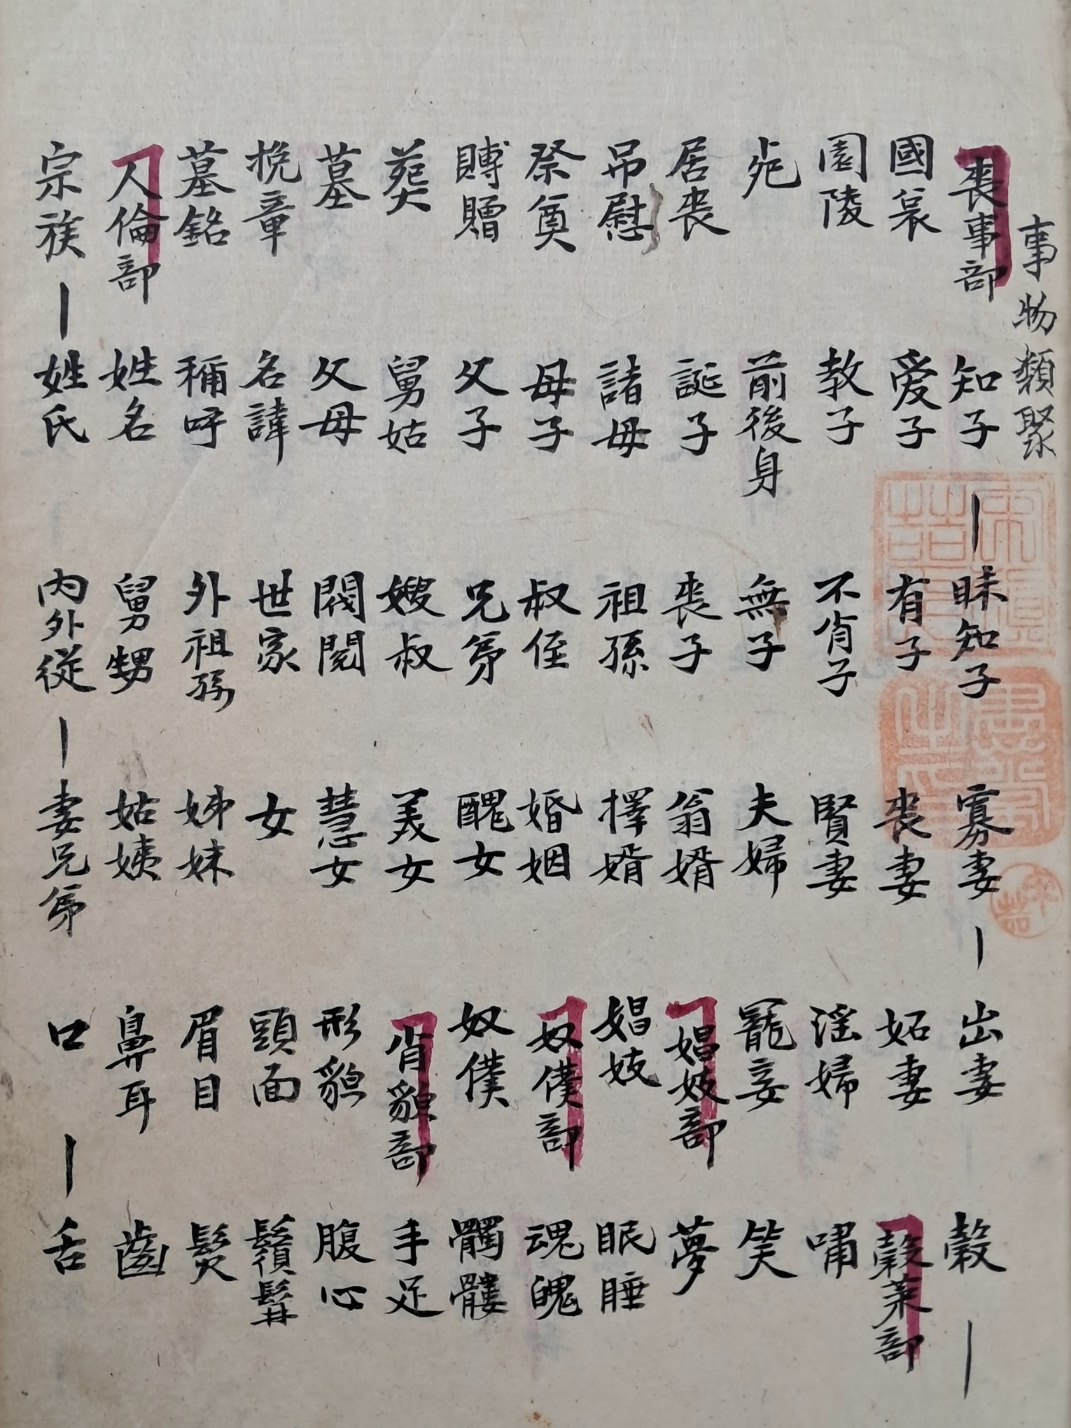 事物類聚
喪事部
國哀
園陵
死
居喪
吊慰
祭奠
賻贈
葬
墓
挽章
墓銘
人倫部
宗族
姓氏
姓名
稱呼
名諱
父母
舅姑
父子
母子
諸母
誕子
前後身
教子
愛子
知子
昧知子
有子
不肖子
無子
喪子
祖孫
叔侄
兄弟
嫂叔
閥閱
世家
外祖孫
舅甥
內外從
妻兄弟
姑姨
姊妹
女
慧女
美女
醜女
婚姻
擇婿
翁婿
夫婦
賢妻
喪妻
寡妻
出妻
妬妻
淫婦
寵妾
娼妓部
娼妓
奴僕部
奴僕
肖貌部
形貌
頭面
眉目
鼻耳
口
舌
齒
髮
鬚髯
腹心
手足
髑髏
魂魄
眠睡
夢
笑
嘯
穀菜部
穀